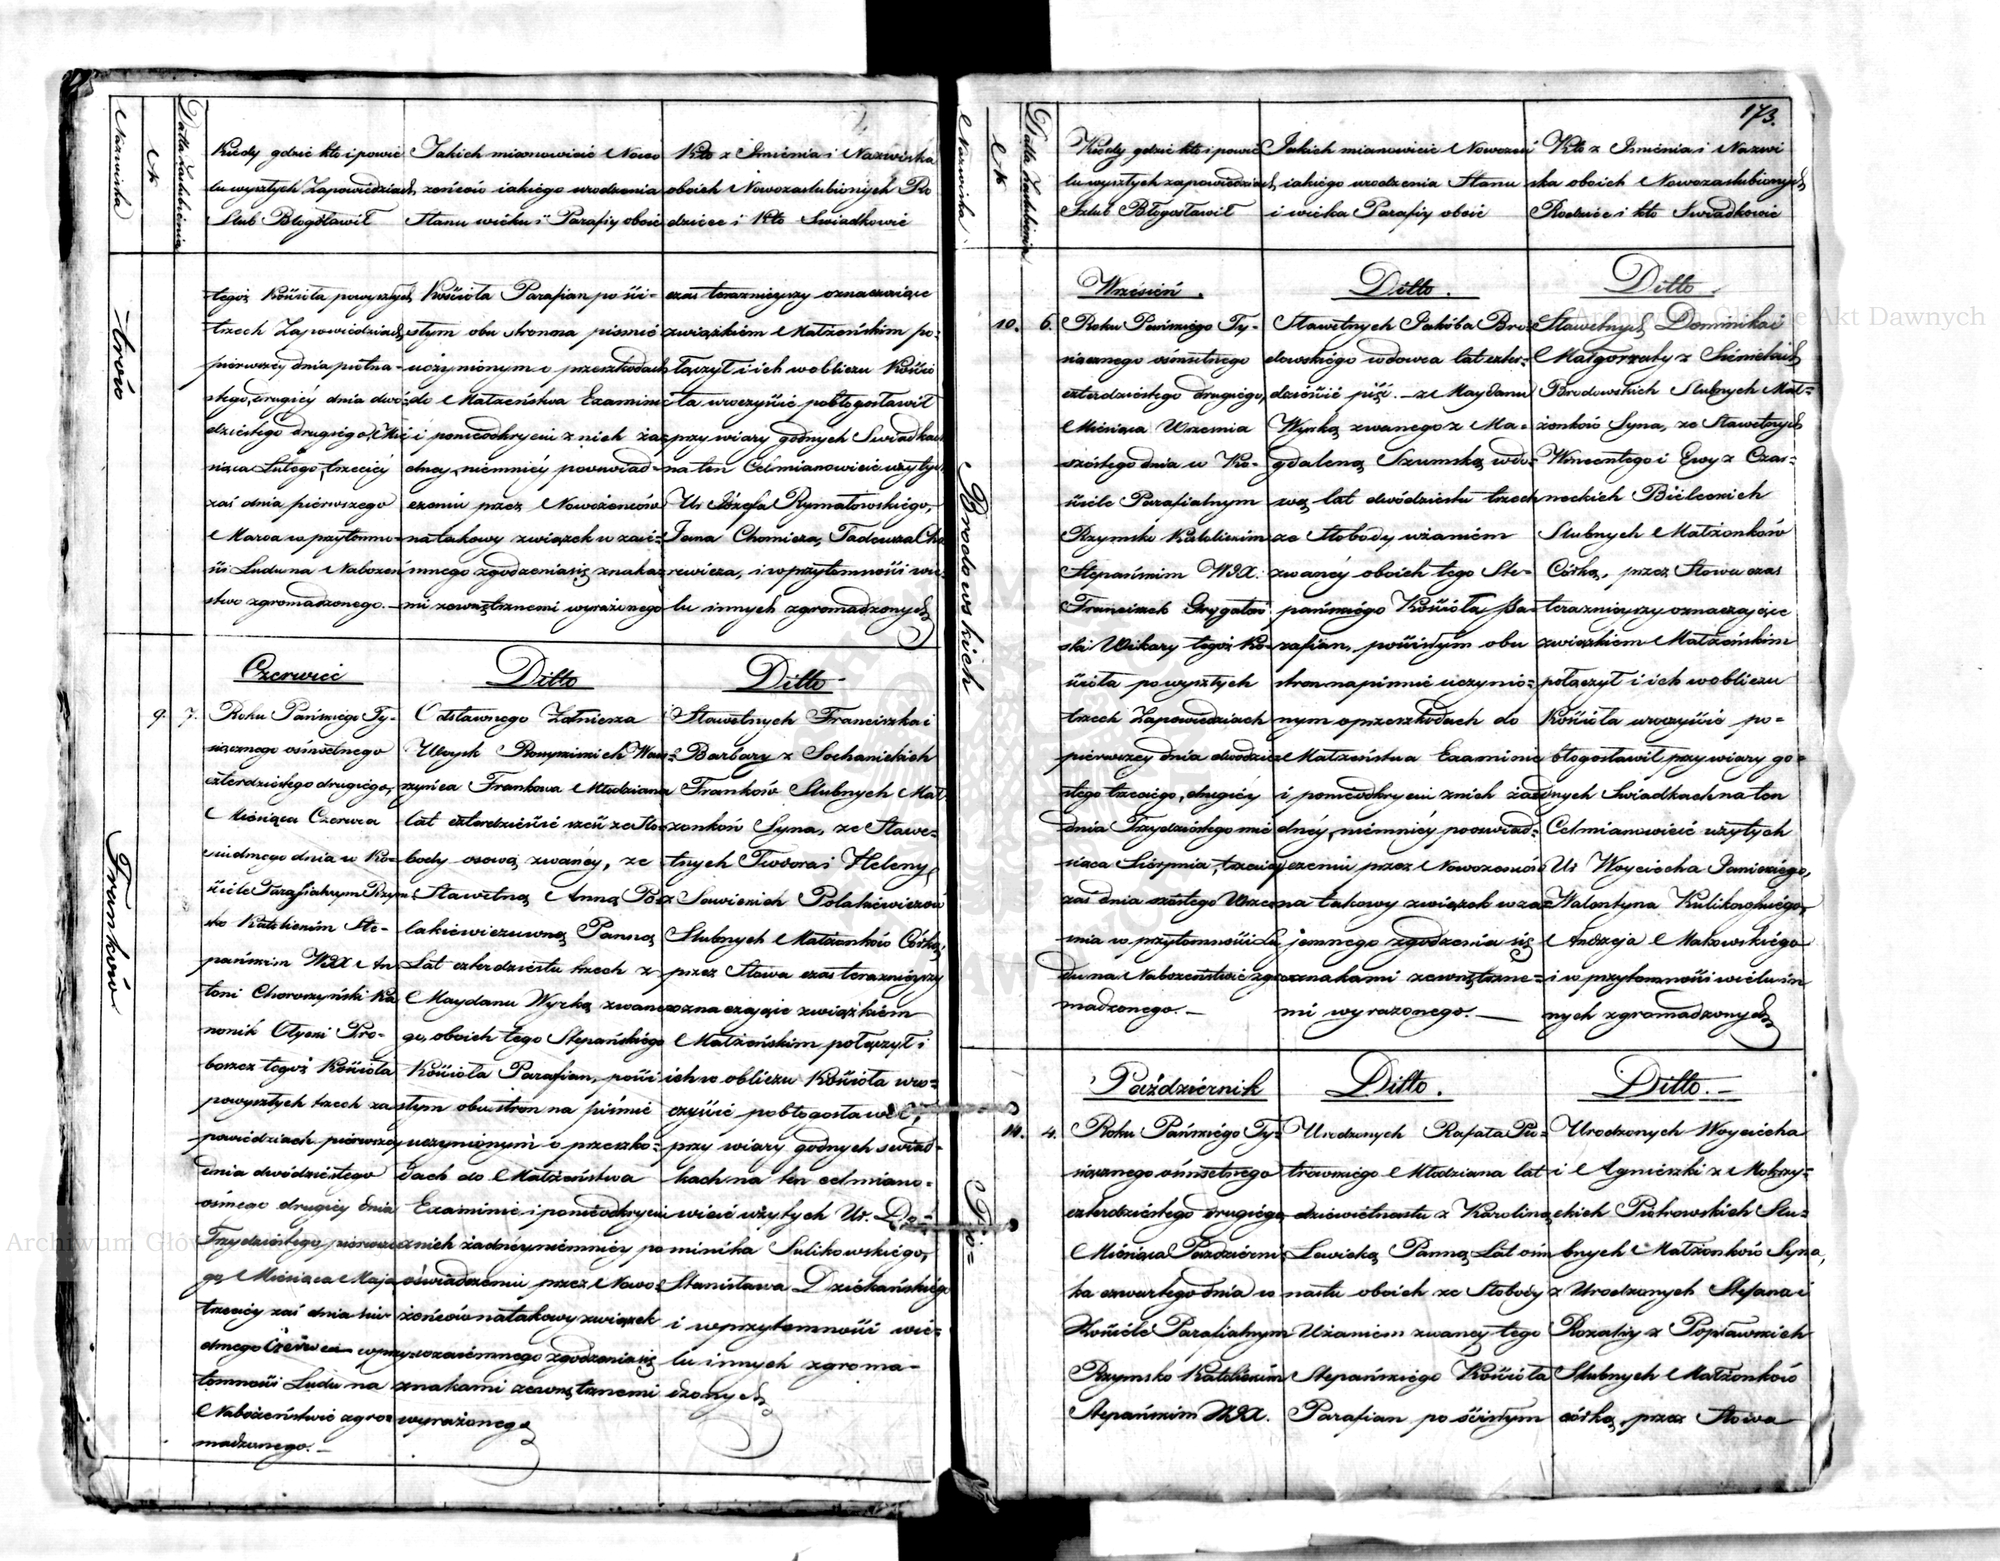 Nazwiska
N
Datta Zaslubienia
Kiedy gdzie kto i po wie
lu wyszłych Zapowiedziach
Slub Błogosławił
Jakich mianowicie Nowo
żeńców iakiego urodzenia
Stanu wieku i Parafiy oboie
Kto z Imienia i Nazwiska
oboich Nowozaslubionych Ro
dzice i Kto Swiadkowie
-trów
tegoż Kościoła powyszłych
trzech Zapowiedziach,
pierwszey dnia piętna-
stego, drugiéy dnia dwó-
dziestego drugiego Mie
siąca Lutego, trzeciéy
zaś dnia pierwszego
Marca w przytomno-
ści Ludu na Nabożeń
stwo zgromadzonego.—
Kościoła Parafian po ści-
słym obu stronna piśmie
uczynionym o przeszkodach
do Małzeństwa Examinie
i pomeodkryciu z nich żad
dney, niemniéy poswiad-
czeniu przez Nowożeńców
na takowy związek wzaie-
mnego zgodzenia się znaka
mi zewnętrznemi wyrażonego
czas teraznieyszy oznaczaiące
związkiem Małzeńskim po-
łączył i ich w obliczu Kościo
ła uroczyście pobłogosławił
przy wiary godnych Swiadkach
na ten Cel mianowicie użytych
Ur Józefa Rymatowskiégo,
Jana Chomicza, Tadeusza
rewicza, i w przytomności wie
lu innych zgromadzonych
Franków
Czerwiec
9. 7.
Roku Pańskiégo Ty-
siącznego ośmsetnego
czterdziestego drugiégo,
Miésiąca Czerwca
siudmego dnia w Ko-
ściele Parafialnym Rzym
sko Katolickim Ste-
pańskim WJX An
toni Choroszyński Ka
nonik Ołycki Pro-
boszcz tegoż Kościoła
powyszłych trzech za
powiedziach pierwszey
dnia dwódziéstego
ósmego drugiéy dnia
Trzydziéstego pierwsze
go Miésiąca Maja
trzeciéy zaś dnia siu-
dmego Czerwca w przy
tomności Ludu na
Nabożeństwie zgro
madzonego.—
Ditto
Odstawnego Żołnierza
Woysk Rossyiskich Waw-
rzyńca Frankowa Młodziana
lat czterdzieście sześć ze Sło-
body osową zwanéy, ze
Sławetną Anną Po
lakiewiczuwną Panną
Lat czterdziestu trzech z
Maydanu Wyrką zwane
go, oboich tego Stepańskiégo
Kościoła Parafian, pości
słym obu stron na piśmie
uczynionym o przeszko-
dach do Małżeństwa
Examinie i pomeodkryciu
z nich żadnéy niemniéy po
oświadczeniu przez Nowo-
żeńców na takowy związek
wzaiemnego zgodzenia się
znakami zewnętrznemi
wyrażonego
Ditto
Sławetnych Franciszka i
Barbary z Sochanickich
Franków Slubnych Mał
żonków Syna, ze Sławe-
tnych Twodora i Heleny
z Sawickich Polakiewiczów
Slubnych Małżonków Córką,
przez Słowa czas teraznieyszy
oznaczaiące związkiem
Małżeńskim połączył i
ich w obliczu Kościoła uro-
czyście pobłogosławił,
przy wiary godnych swiad-
kach na ten cel miano-
wicie użytych Ur. Do-
minika Sulikowskiégo,
Stanisława Dziékańskiégo
i w przytomności wie-
lu innych zgroma-
dzonych
173.
Nazwiska
N
Datta Zaslubienia
Kiedy gdzie kto i po wie
lu wyszłych zapowiedziach
Szlub Błogosławił
Jakich mianowicie Nowożeń
iakiego urodzenia Stanu
i wieka Parafiy oboie
Kto z Imienia i Nazwi
ska oboich Nowozaslubionych
Rodzice i kto Swiadkowie
Brodowskich
Wrzesień.
10. 6.
Roku Pańskiégo Ty-
siącznego ośmsetnego
czterdziestego drugiégo,
Miésiąca Wrzesnia
szóstego dnia w Ko-
ściele Parafialnym
Rzymsko Katolickim
Stepańskim WJX.
Franciszek Grygato
ski Wikary tegoż Ko-
ścioła powyszłych
trzech Zapowiedziach
pierwszey dnia dwudzie
stego trzeciégo, drugiéy
dnia Trzydziéstego mie
siąca Sierpnia, trzeciéy
zaś dnia szóstego Wrze
snia w przytomności Lu
du na Nabożeństwie zgro
madzonego.—
Ditto.
Sławetnych Jakóba Bro
dowskiégo wdowca lat czter-
dzieście pięć.— ze Maydanu
Wyrką zwanego z Ma-
gdaleną Szumską wdo-
wą lat dwódziestu trzech
ze Słobody użaniem
zwanéy oboich tego Ste-
pańskiégo Kościoła Pa-
rafian, pościsłym obu
stron na piśmie uczynio-
nym o przeszkodach do
Małzeństwa Examinie
i pomeodkryciu z nich żad
dnéy, niemniéy poswiad-
czeniu przez Nowożeńców
na takowy związek wza-
jemnego zgodzenia się
znakami zewnętrzne-
mi wyrażonego.—
Ditto.
Sławetnych Dominika i
Małgorzaty z Siénickich
Brodowskich Slubnych Mał-
żonków Syna, ze Sławetnych
Wincentego i Ewy z Czar-
neckich Bieleckich
Slubnych Małżonków
Córką, przez Słowa czas
teraznieyszy oznaczaiące
związkiem Małżeńskim
połączył i ich w obliczu
Kościoła uroczyście po-
błogosławił, przy wiary go-
dnych Swiadkach na ten
Cel mianowicie użytych
Ur Woyciecha Janickiégo,
Walentyna Kulikowskiégo,
Andrzeja Makowskiégo
i w przytomności wielu in
nych zgromadzonych
Pio-
Październik
11. 4.
Roku Pańskiégo Ty-
siącznego ośmsetnego
czterdziestego drugiégo
Miésiąca Październi
ka czwartego dnia w
Kościele Parafialnym
Rzymsko Katolickim
Stepańskim WJX.
Ditto.
Urodzonych Rafała Pio-
trowskiégo Młodziana lat
dziewiétnastu z Karoliną
Lewicką Panną Lat ośm
nastu oboich ze Słobody
Użaniem zwanéy tego
Stepańskiégo Kościoła
Parafian po ścisłym
Ditto.—
Urodzonych Woyciécha
i Agnieszki z Mokrzy-
ckich Piotrowskich Slu-
bnych Małżonków Syna,
z Urodzonych Stefana i
Rozaliy z Popławskich
Slubnych Małżonków
córką, przez Słowa
Archiwum Główne Akt Dawnych